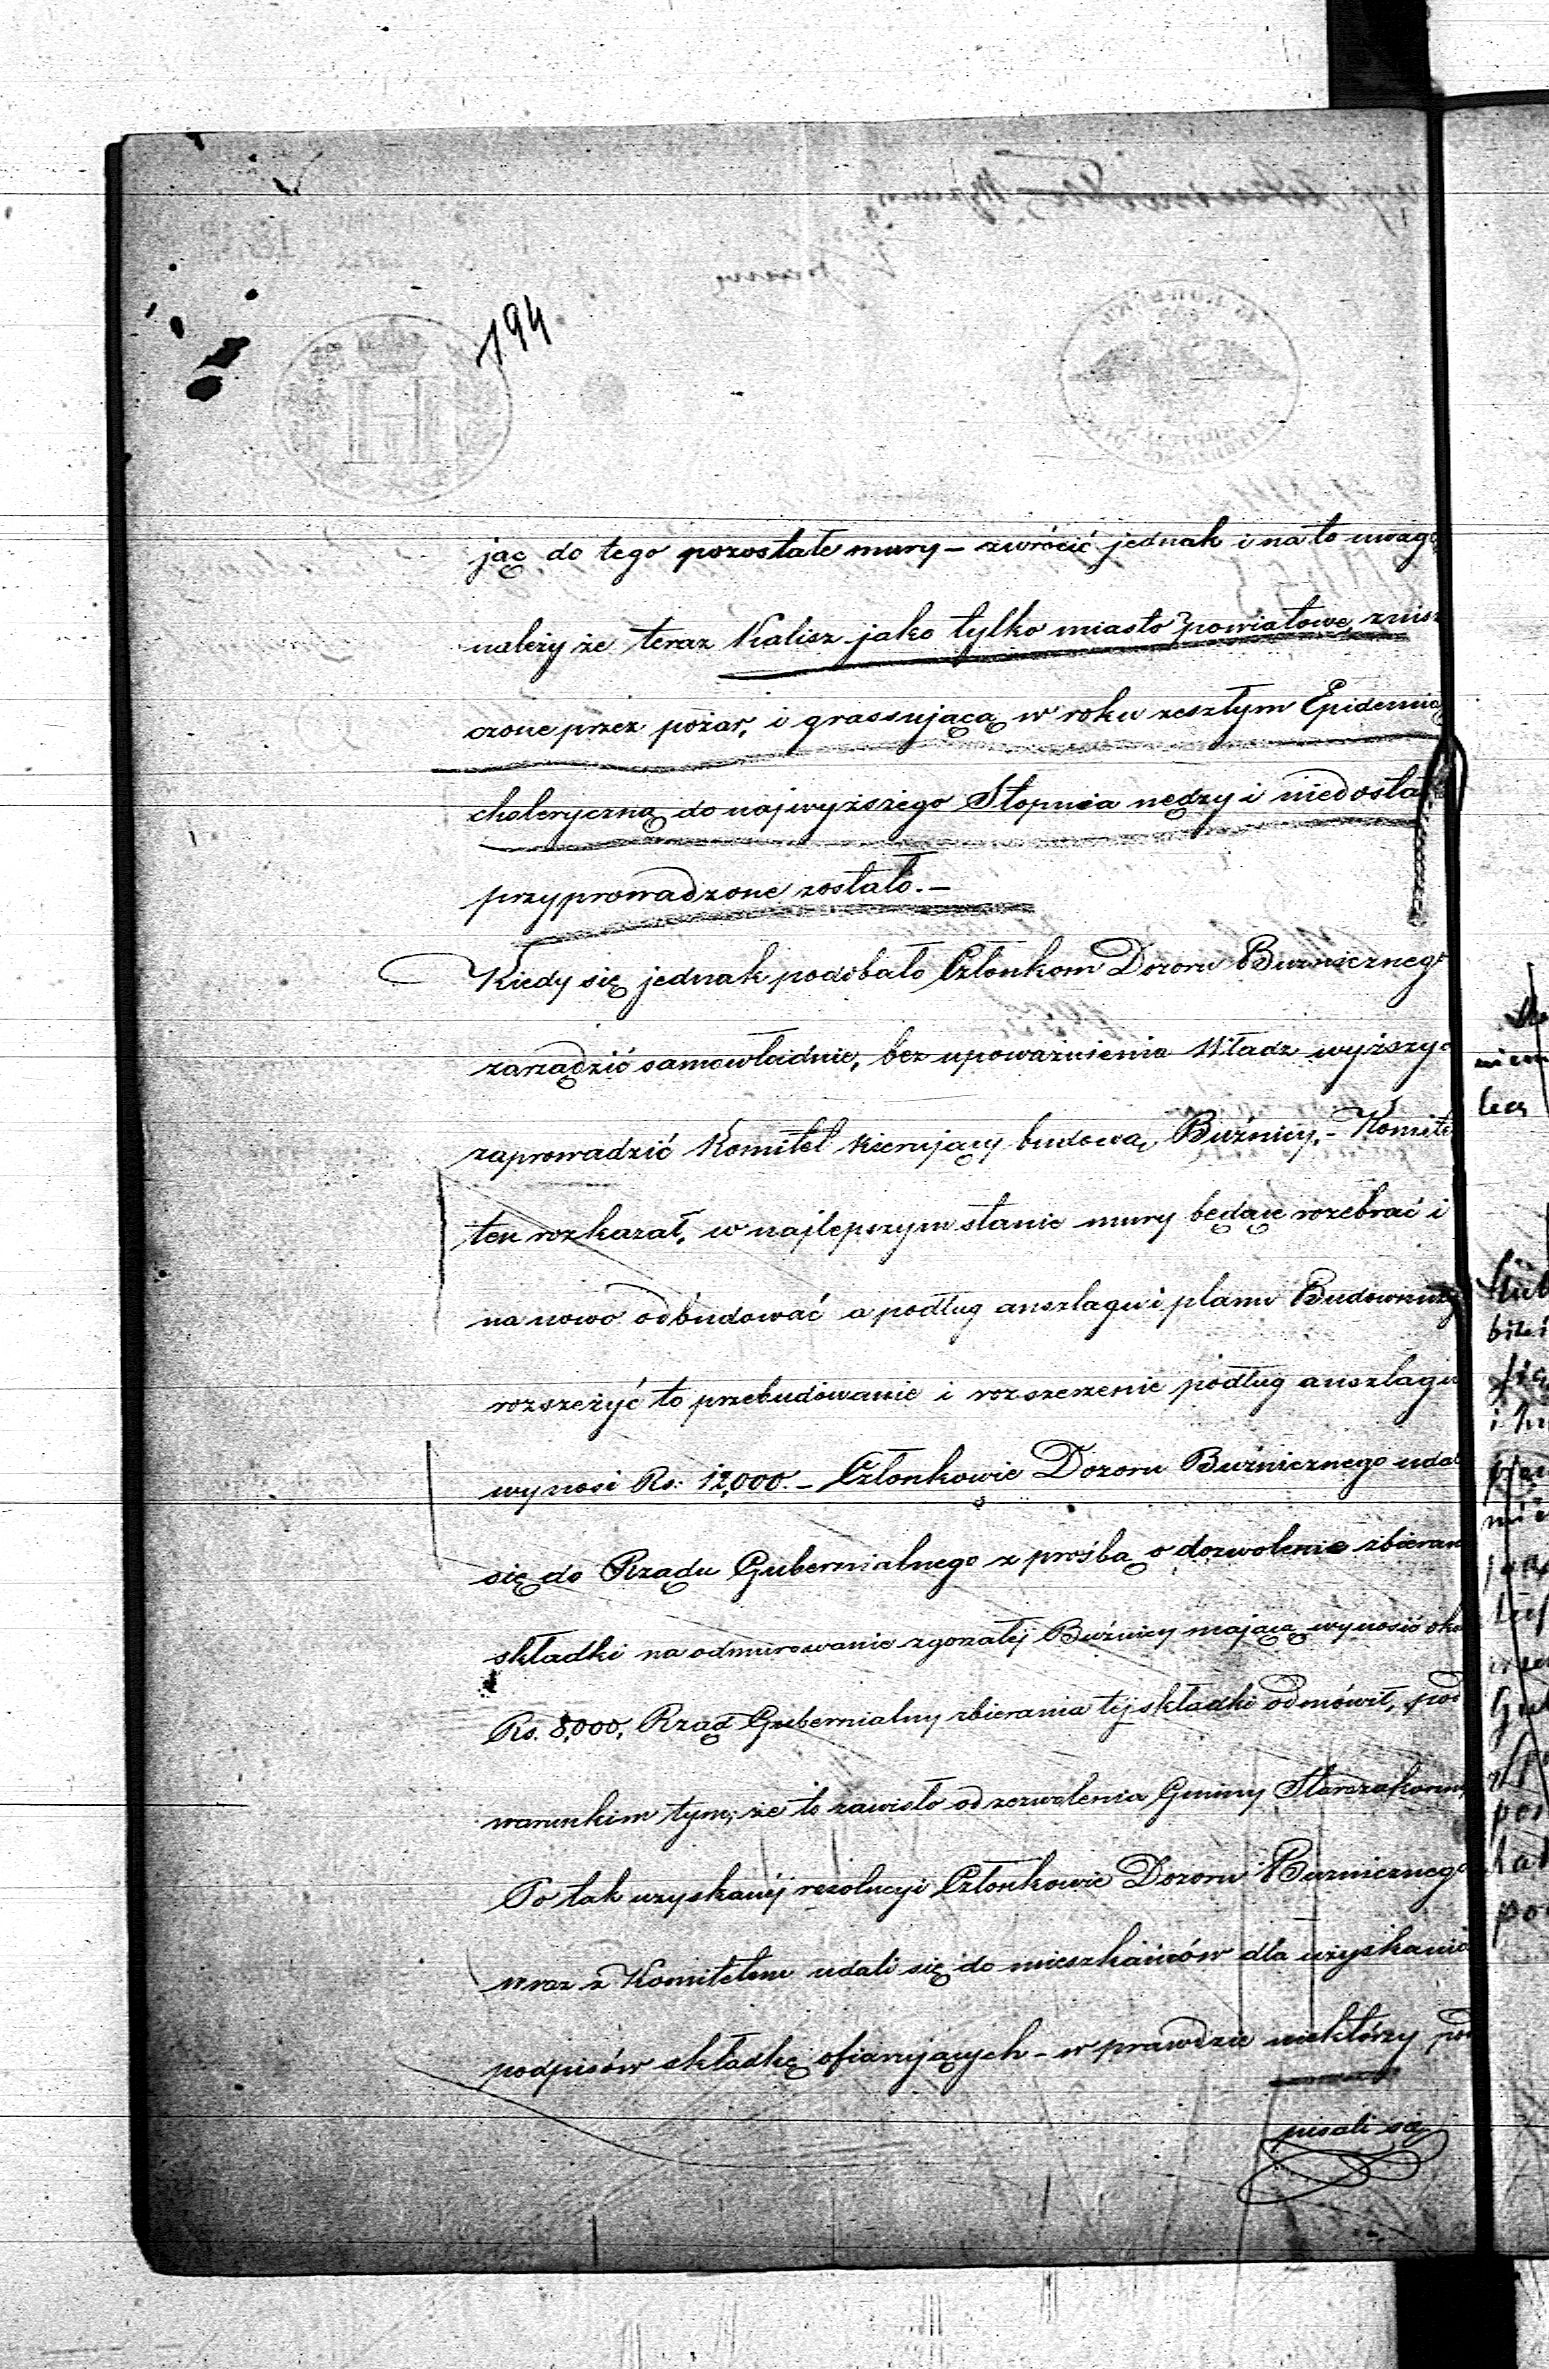 194
jąc do tego pozostałe mury – zwrócić jednak i na to uwagę
należy że teraz Kalisz jako tylko miasto powiatowe, znisz
czone przez pożar, i grassującą w roku zeszłym Epidemią
choleryczną do najwyższego Stopnia nędzy i niedosta
przyprowadzone zostało. –
Kiedy się jednak podobało Członkom Dozoru Buźnicznego
zarządzić samowładnie, bez upoważnienia Władz wyższyc
zaprowadzić Komitet kierujący budową Buźnicy. – Komite
ten rozkazał, w najlepszym stanie mury będące rozebrać i
na nowo odbudować a podług anszlagu i planu Budownicz
rozszeżyć to przebudowanie i rozszerzenie podług anszlagu
wynosi Rs: 12,000. – Członkowie Dozoru Buźnicznego udal
się do Rządu Gubernialnego z prośbą o dozwolenie zbieran
składki na odmurowanie zgorzałej Buźnicy mającą wynosić oko
Rs. 8,000, Rząd Gubernialny zbierania tej składki odmówił, pod
warunkim tym; że to zawisło od zezwolenia Gminy Starozakonn
Po tak uzyskanej rezolucyi Członkowie Dozoru Buznicznego
wraz z Komitetem udali się do mieszkańców dla uzyskania
podpisów składkę ofiarujących – w prawdzie niektórzy pod
pisali się